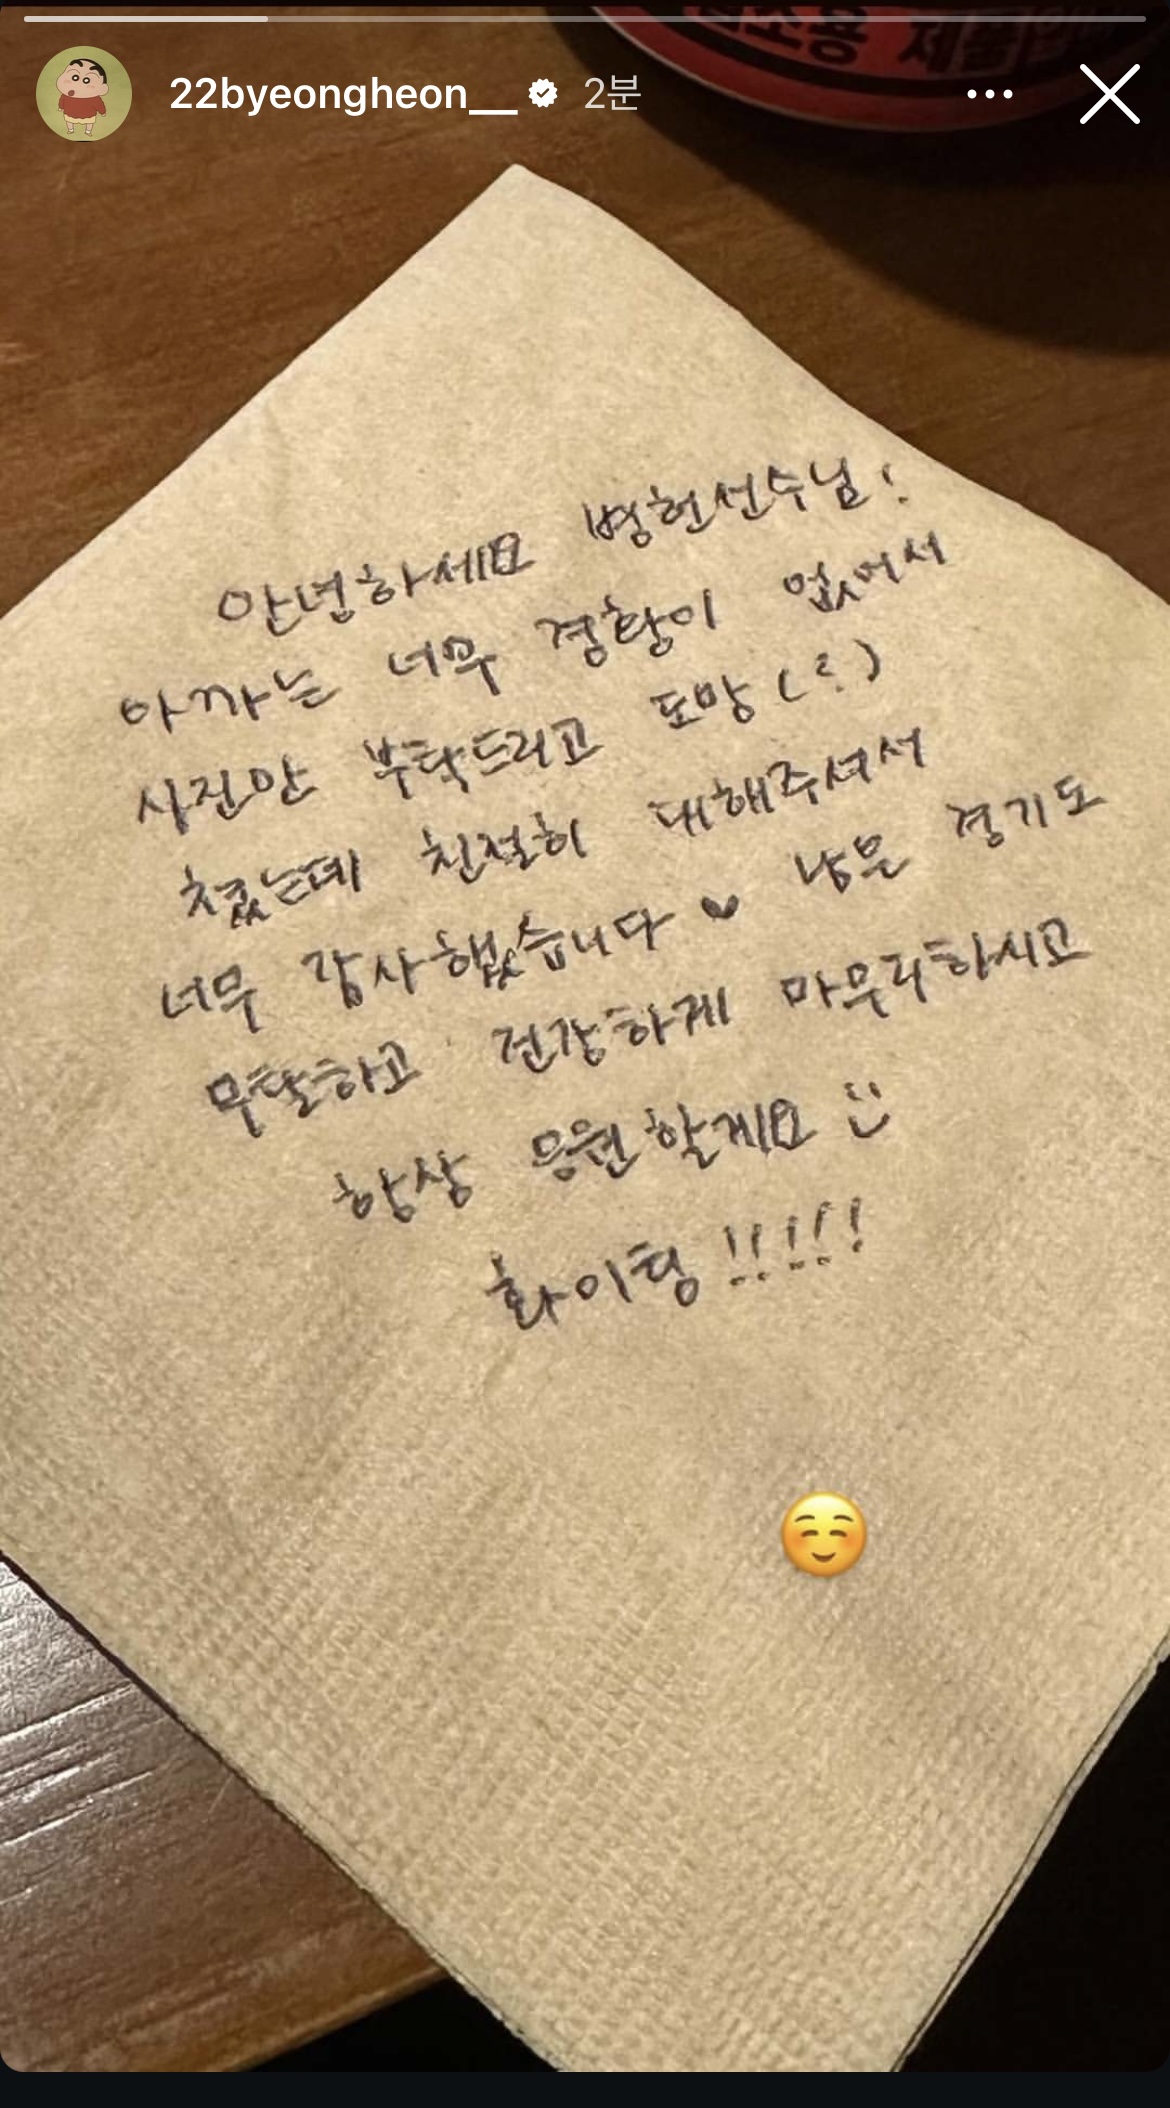 22byeongheon__ 2분
제품
안녕하세요 병헌선수님!
아까는 너무 경황이 없어서
사진만 부탁드리고 도망(?)
쳤는데 친절히 대해주셔서
너무 감사했습니다♥ 남은 경기도
무탈하고 건강하게 마무리하시고
항상 응원할게요 :)
화이팅!!!!!